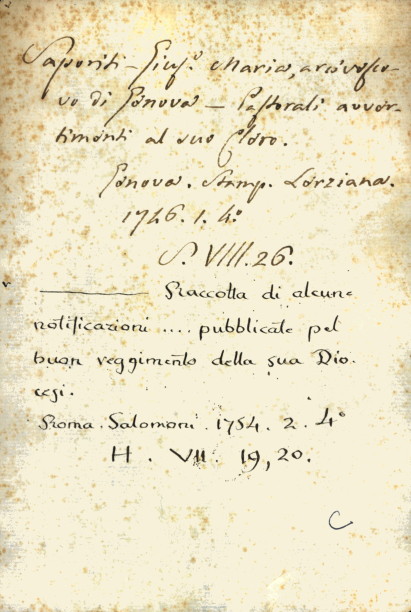 Saporiti - Gius.e Maria, arcivesco-
vo di Genova - Pastorali avver-
timenti al suo Clero.
Genova. Stamp. Lerziana.
1746. 1. 4.o
S. VIII. 26.
——— Raccolta di alcune
notificazioni .... pubblicate pel
buon reggimento della sua Dio.
cesi.
Roma. Salomoni. 1754. 2. 4o
H. VII. 19, 20.
C